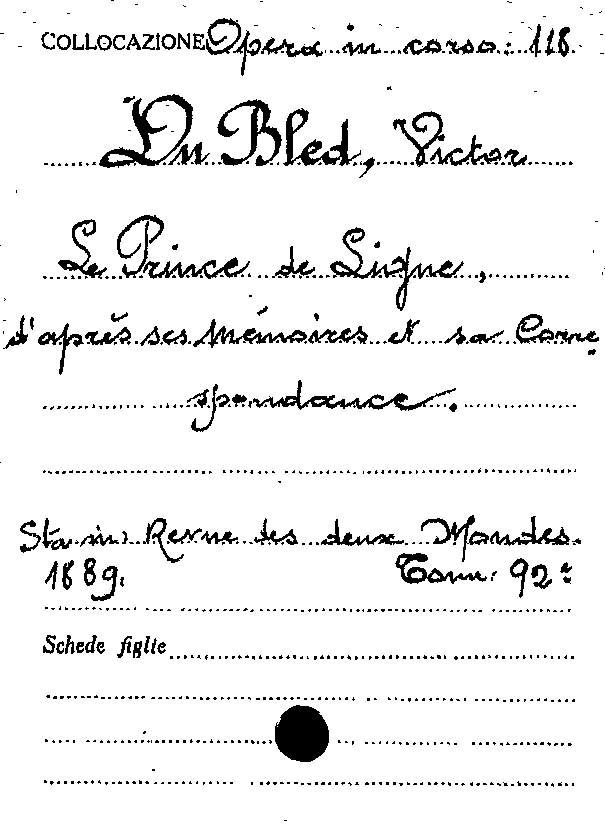 COLLOCAZIONE Opera in corso: 118
Du Bled, Victor
Le Prince de Ligne,
d'après ses Mémoires et sa Corre
spondance.
Sta in: Revue des deux Mondes.
1889. Tom. 92º
Schede figlie